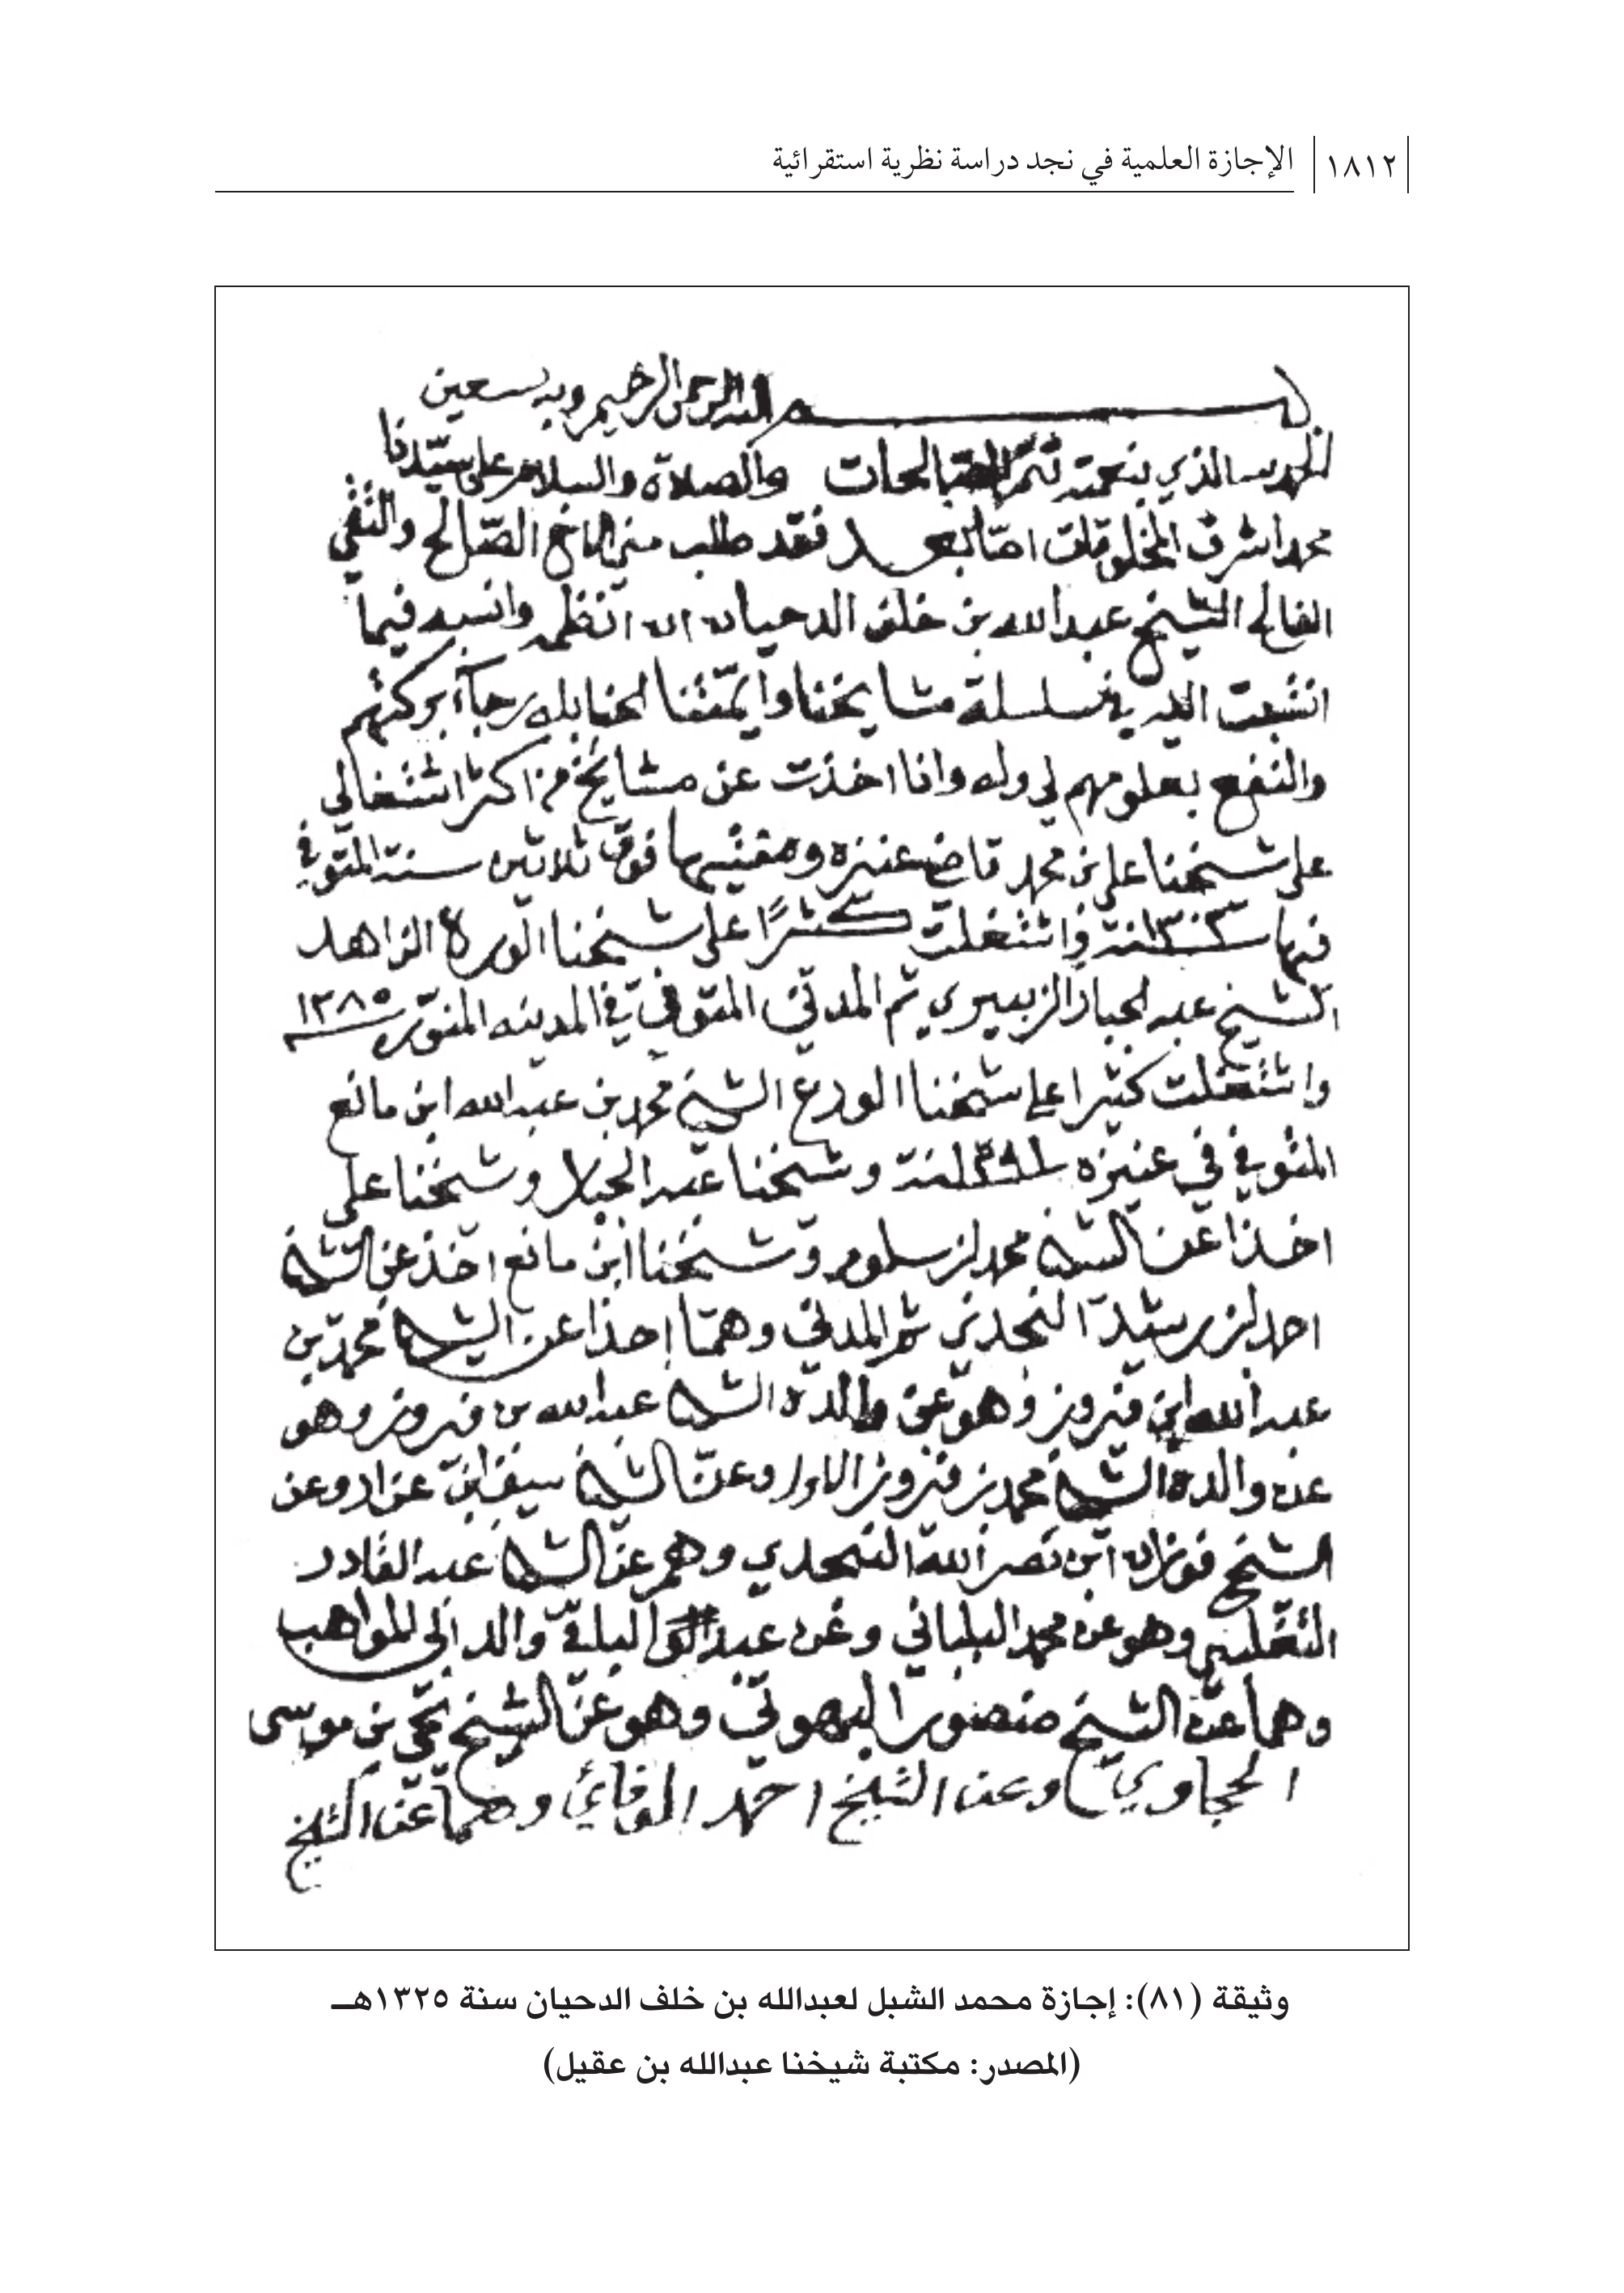 ١٨١٢ الإجازة العلمية في نجد دراسة نظرية استقرائية
بسم الله الرحمن الرحيم وبه نستعين
الحمد لله الذي بنعمته تتم الصالحات والصلاة والسلام على سيدنا
محمد اشرف المخلوقات اما بعد فقد طلب مني الاخ الصالح والتقي
الشيخ عبد الله بن خلف الدحيان ان انظمه وانسبه فيما
الله في سلسلة مشايخنا وايمتنا الحنابله رجاء بركتهم
والنفع بعلومهم لي وله وانا اخذت عن مشايخ من اكثر اشتغالي
على شيخنا علي بن محمد قاضي عنيزه ومفتيها فوق ثلاثين سنة المتوفي
فيها ١٣٠٣ سنة واشتغلت كثيرًا على شيخنا الورع الزاهد
الشيخ عبد الجبار الزبيري ثم المدني المتوفي في المدينه المنوره ١٢٨٥
واشتغلت كثيرا على شيخنا الورع الشيخ محمد بن عبد الله ابن مانع
المتوفي في عنيزه ١٢٩١ سنة وشيخنا عبد الجبار وشيخنا علي
اخذا عن الشيخ محمد بن سلوم وشيخنا ابن مانع اخذ عن الشيخ
احمد بن رشيد النجدي ثم المدني وهما اخذا عن الشيخ محمد بن
عبد الله ابن فيروز وهو عن والده الشيخ عبد الله بن فيروز وهو
عن والده الشيخ محمد بن فيروز الاول وعن الشيخ سيف ابن عزاز وعن
الشيخ فوزان ابن نصر الله النجدي وهم عن الشيخ عبد القادر
التغلبي وهو عن محمد البلباني وعن عبد الباقي والد ابي المواهب
وهما عن الشيخ منصور البهوتي وهو عن الشيخ يحي بن موسى
الحجاوي وعن الشيخ احمد الوفائي وهما عن الشيخ
وثيقة (٨١): إجازة محمد الشبل لعبدالله بن خلف الدحيان سنة ١٣٢٥هـ
(المصدر: مكتبة شيخنا عبدالله بن عقيل)